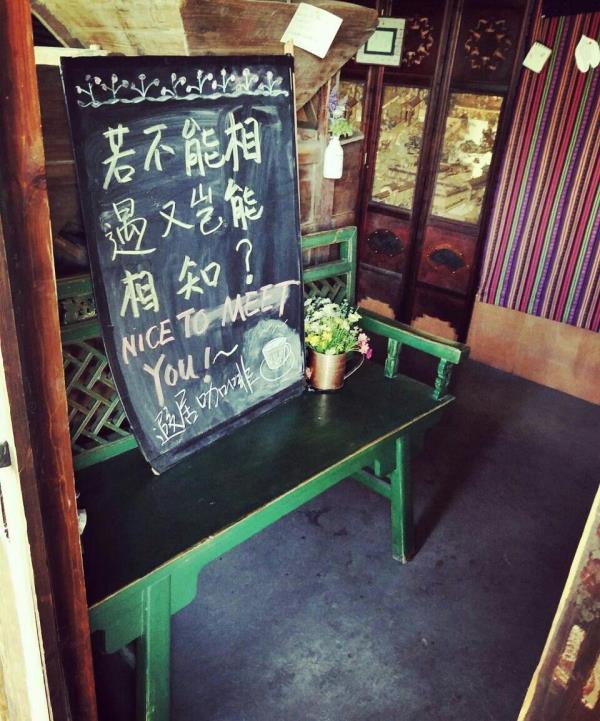 若不能相
遇又岂能
相知?
NICE TO MEET
YOU!~
遐居咖啡